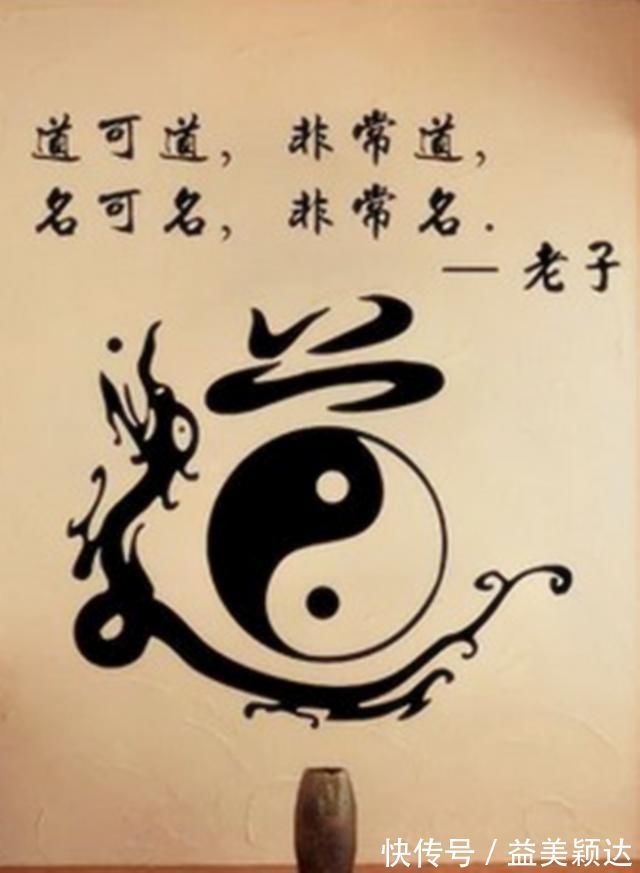 道可道，非常道，
名可名，非常名.
— 老子
道
快传号 / 益美颖达